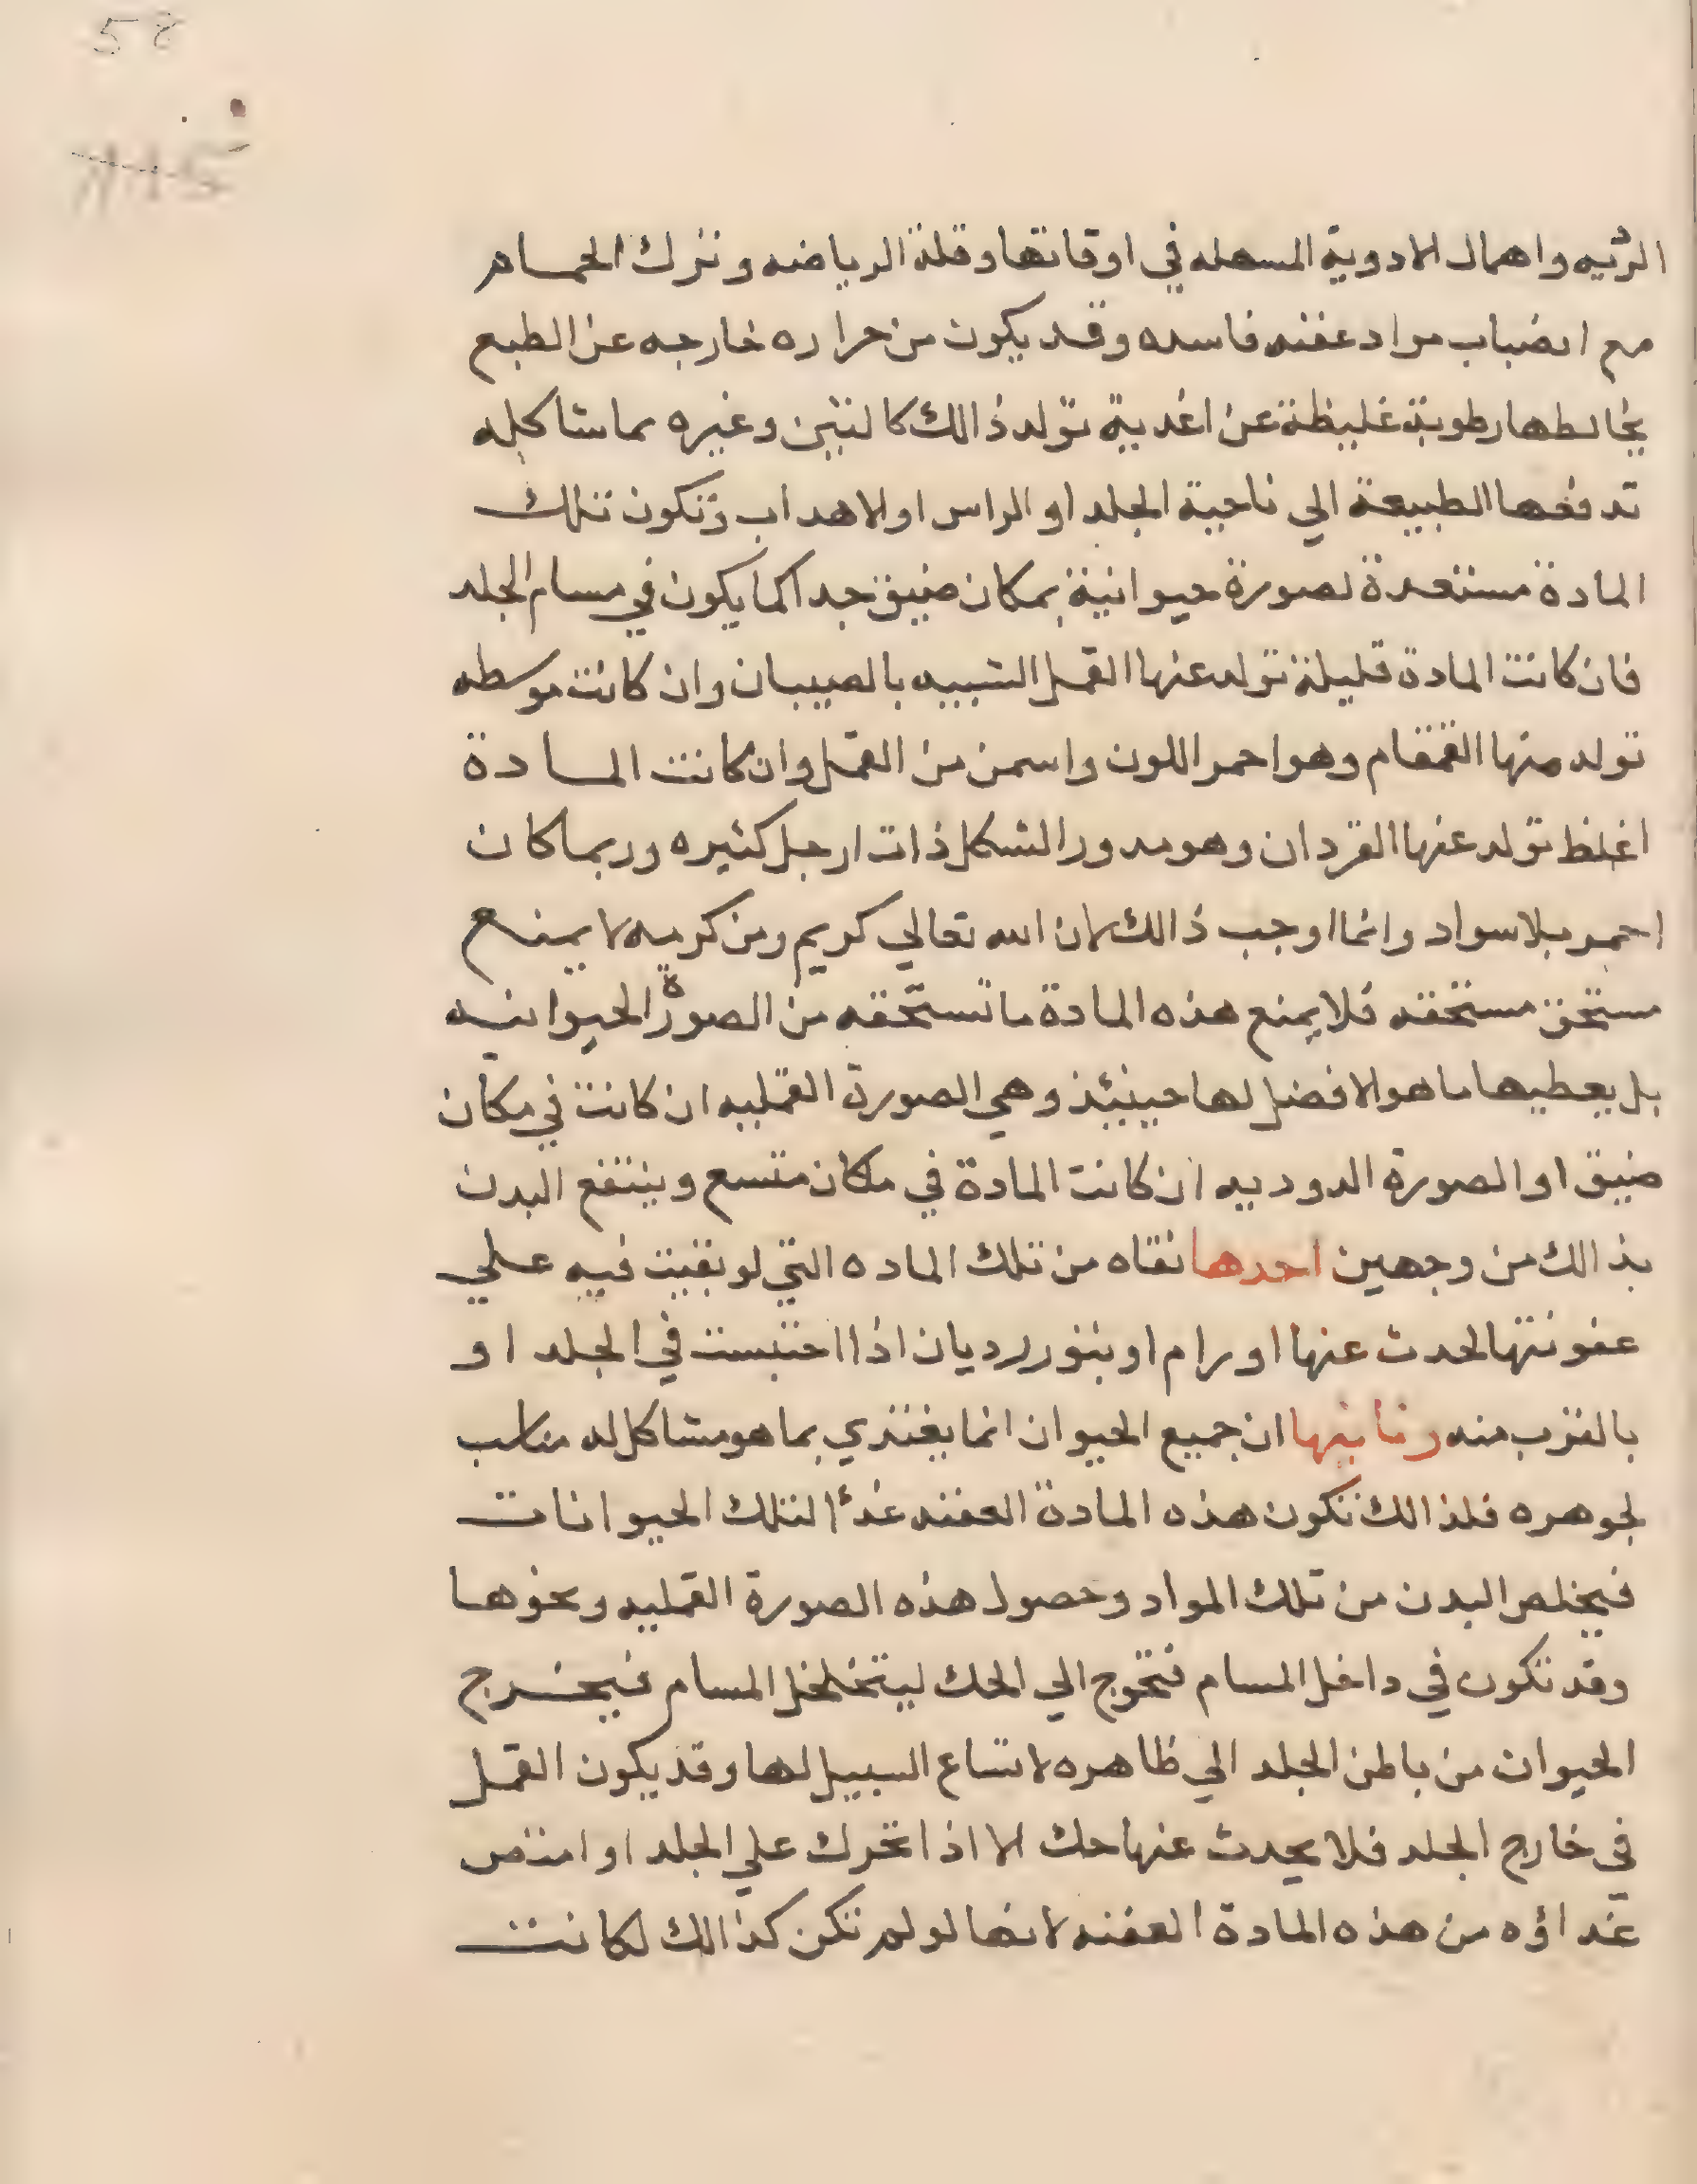 58
الرثيه واهمال الادوية المسهله في اوقاتها وقلة الرياضه وترك الحمام
مع انضباب مواد عفنه فاسده وقد يكون من حراره خارجه عن الطبع
يخالطها رطوبة غليظة عن اغدية تولد ذالك كالتين وغيره مماشاكله
تدفعها الطبيعة الي ناحية الجلد او الراس او الاهداب وتكون تلك
المادة مستعدة لصورة حيوانية بمكان ضيق جدا كما يكون في مسام الجلد
فان كانت المادة قليلة تولد عنها القمل الشبيه بالصيبان وان كانت موسطه
تولد منها القمقام وهو احمر اللون واسمن من القمل وان كانت المادة
اغلظ تولد عنها القردان وهو مدور الشكل ذات ارجل كثيره وربما كان
احمر بلا سواد وانما اوجب ذالك لان الله تعالي كريم ومن كرمه لا يمنع
مستحق مستحقه فلا يمنع هذه المادة ما تستحقه من الصورة الحيوانيه
بل يعطيها ما هو الافضل لها حينئذ وهي الصورة القمليه ان كانت في مكان
ضيق او الصورة الدوديه ان كانت المادة في مكان متسع وينتفع البدن
بذالك من وجهين احدها نقاه من تلك الماده التي لو بقيت فيه علي
عفونتها لحدث عنها اورام او بثور رديان اذا احتبست في الجلد او
بالقرب منه وثانيها ان جميع الحيوان انما يغتذي بما هو مشاكل له مناسب
لجوهره فلذالك تكون هذه المادة العفنه غذاً لتلك الحيوانات
فيخلص البدن من تلك المواد وحصول هذه الصورة القمليه ونحوها
وقد تكون في داخل المسام فتحوج الي الحك ليتخلخل المسام فيخرج
الحيوان من باطن الجلد الي ظاهره لاتساع السبيل لها وقد يكون القمل
في خارج الجلد فلا يحدث عنها حك الا اذا تحرك علي الجلد او امتص
غداؤه من هذه المادة العفنه لانها لو لم تكن كذالك لكانت